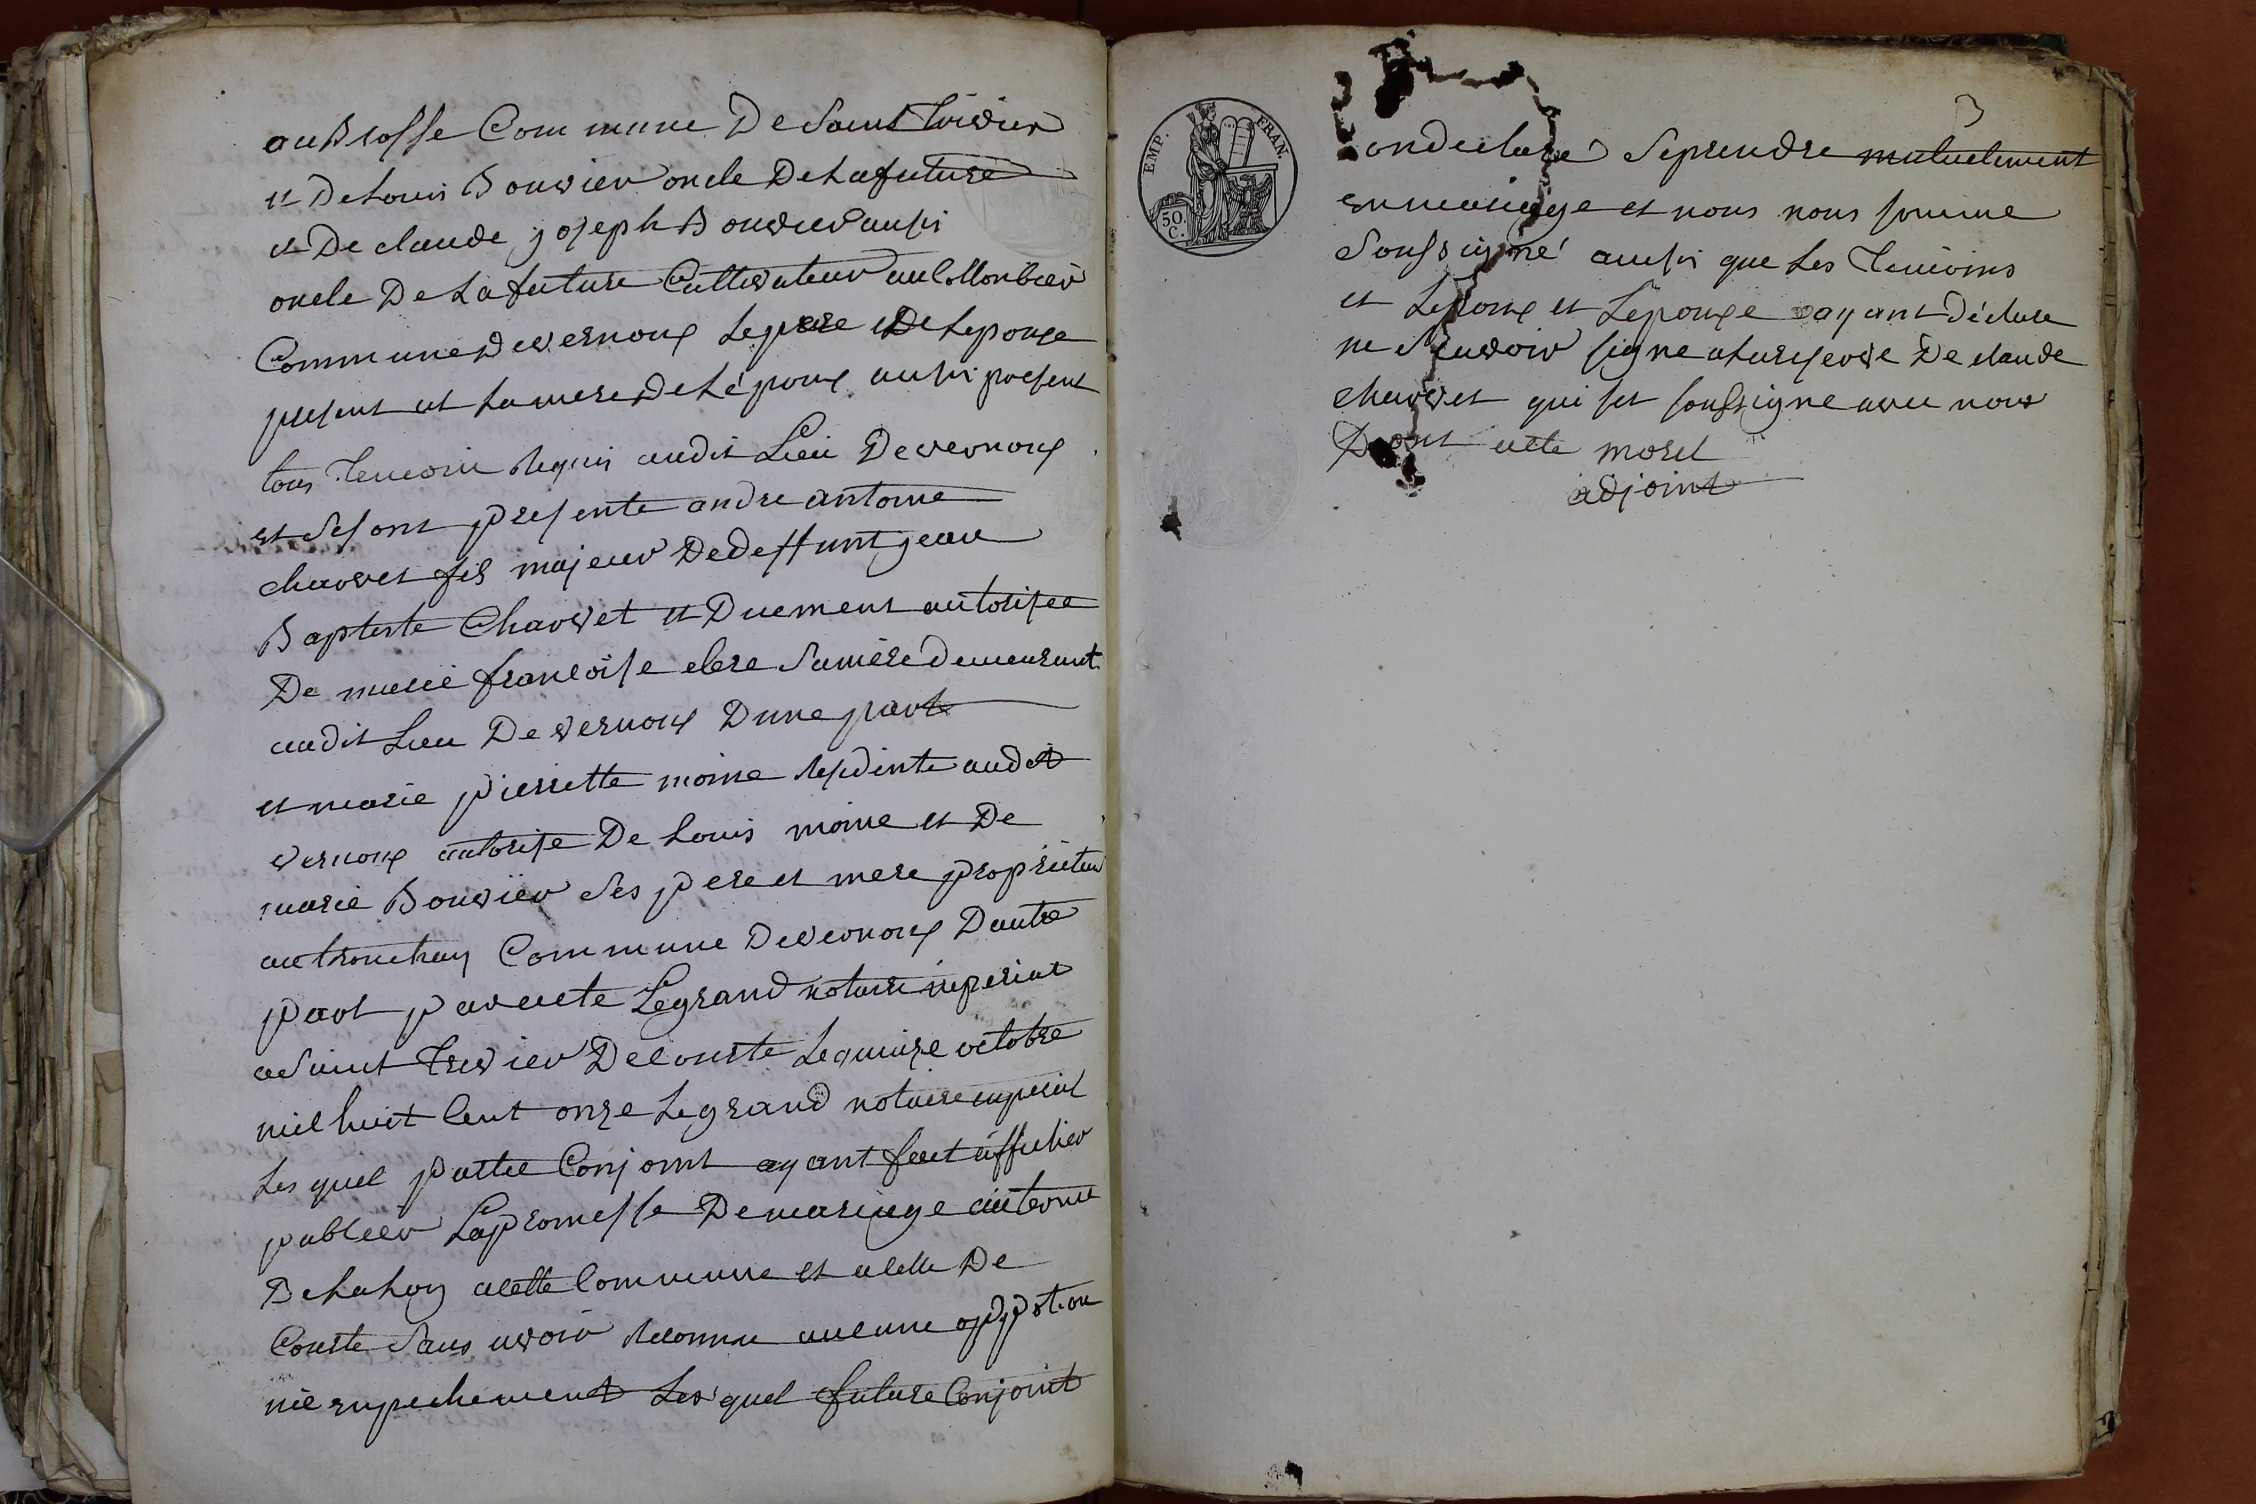 au Brosse Commune De Saint Trivier
et De Louis Bouvier oncle De La future
et De claude joseph Bouvier aussi
oncle De La future Cultivateur au Collonbier
Commune De vernoux Le pere et De Lepouse
present et La mere De Lépoux aussi present
tous Temoin Requis audit Lieu De vernoux
et se sont presente andre antoine
chauvet fils majeur De deffunt jean
Baptiste Chauvet et Duement autorisee
De marie francoise clere Sa mère demeurant
audit Lieu De vernoux Dune part
et marie pierrette moine residente audit
vernoux autorise De Louis moine et De
marie Bouvier ses pere et mere proprieter
au tronchay Commune De vernoux Dautre
part par acte Legrand notaire imperial
a Saint Trivier De courte Le quinze octobre
mil huit Cent onze Legrand notaire imperial
Les quel partie Conjoint ayant fait afficher
publier La promesse De mariage au terme
De La Loy a cette Commune et a celle De
Courte Sans avoir Reconnu aucune oppotion
nie enpechement Les quel future Conjoint
3
EMP. FRAN.
50 C.
on declaré Se prendre mutuelement
en mariage et nous nous somme
Soussigné aussi que Les Temoins
et Lepoux et Lepouxe ayant Déclare
ne Scavoir signe a La reserve De claude
chauvet qui set soussigne avec nous
Dont acte morel
adjoint